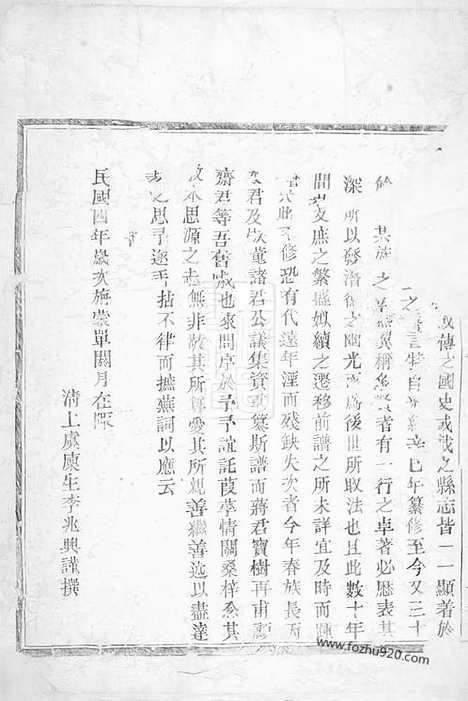 或傳之國史或載之縣志皆一一顯着於
之 言特自 辛巳年纂修至今又三十
其族 之 者有一行之卓著必歷表其
深所以發潛德之幽光而為後世所取法也且此數十年
間 支庶之繁盛姒續之遷移前譜之所未詳宜及時而
此 修恐有代遠年湮而殘缺失次者今年春族長
君及 董諸君公議集資 纂斯譜而蔣君寶樹再甫
齋君等吾舊戚也來問序於予予誼託葭莩情關桑梓念其
木思源之志無非敬其所尊愛其所親善繼善述以盡達
之思予遂手拈不律而摭蕪詞以應云
民國四年歲次旃蒙單閼月在陬
清上虞廩生李兆興謹撰
www.fozhu920.com